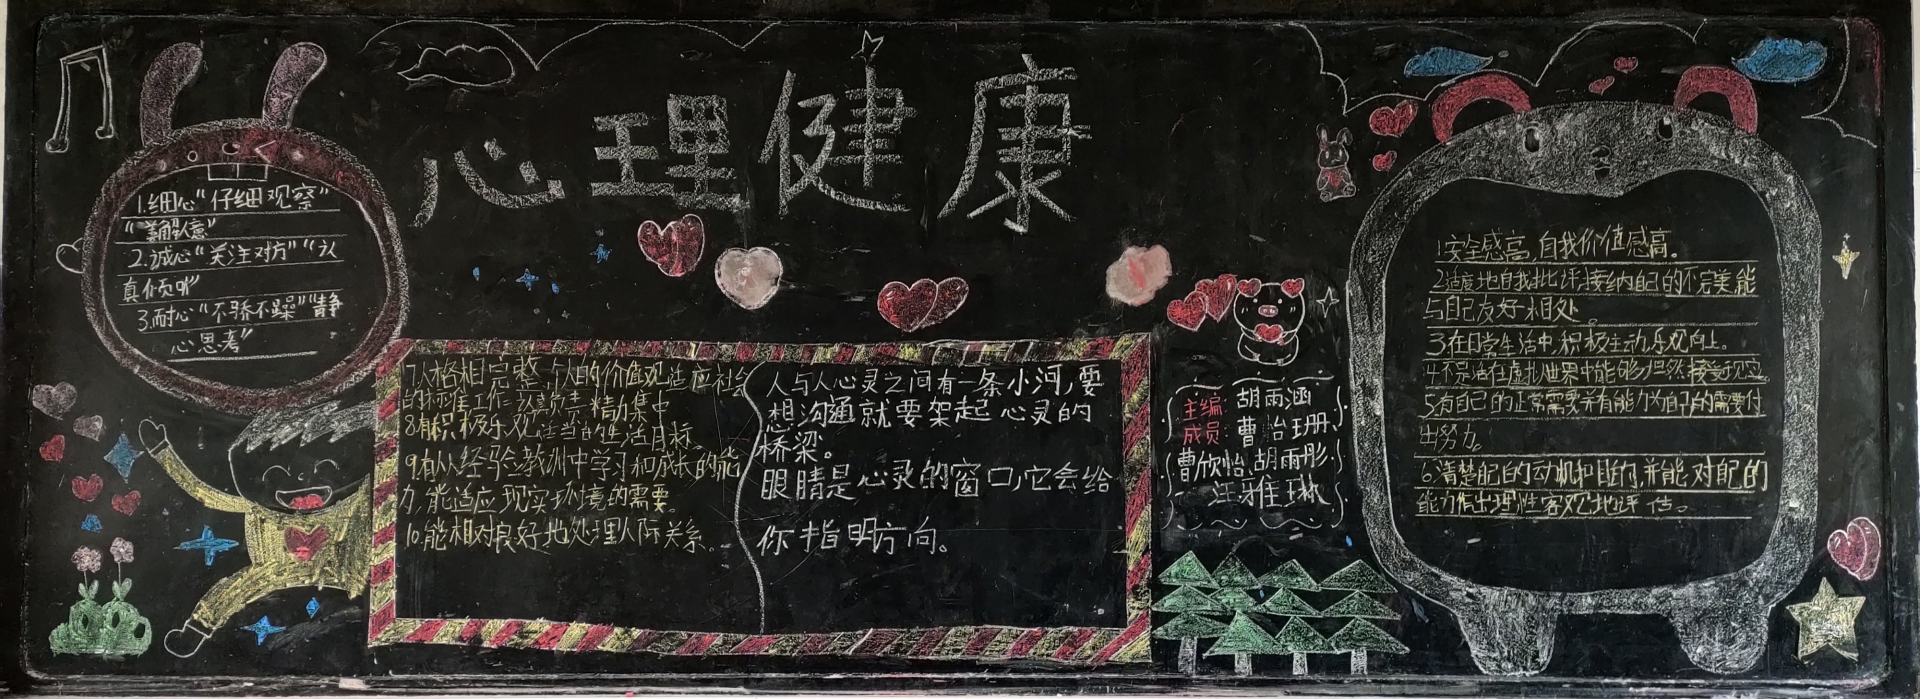 心理健康
1.细心“仔细观察”
“善解人意”
2.诚心“关注对方”“认
真倾听”
3.耐心“不骄不躁”“静
心思考”
7.人格相完整,个人的价值观适应社会
的标准工作认真负责精力集中
8.有积极乐观适当的生活目标。
9.有从经验教训中学习和成长的能
力,能适应现实环境的需要。
10.能相对良好地处理人际关系。
人与人心灵之间有一条小河,要
想沟通就要架起心灵的
桥梁。
眼睛是心灵的窗口,它会给
你指明方向。
主编:胡雨涵
成员:曹怡珊.
曹欣怡.胡雨彤.
汪雅琳
1安全感高,自我价值感高。
2适度地自我批评,接纳自己的不完美,能
与自己友好相处。
3.在日常生活中,积极主动,乐观向上。
4不是活在虚拟世界中能够坦然接受现实
5有自己的正常需要并有能力为自己的需要付
出努力。
6.清楚自己的动机和目的,并能对自己的
能力作出理性客观地评估。